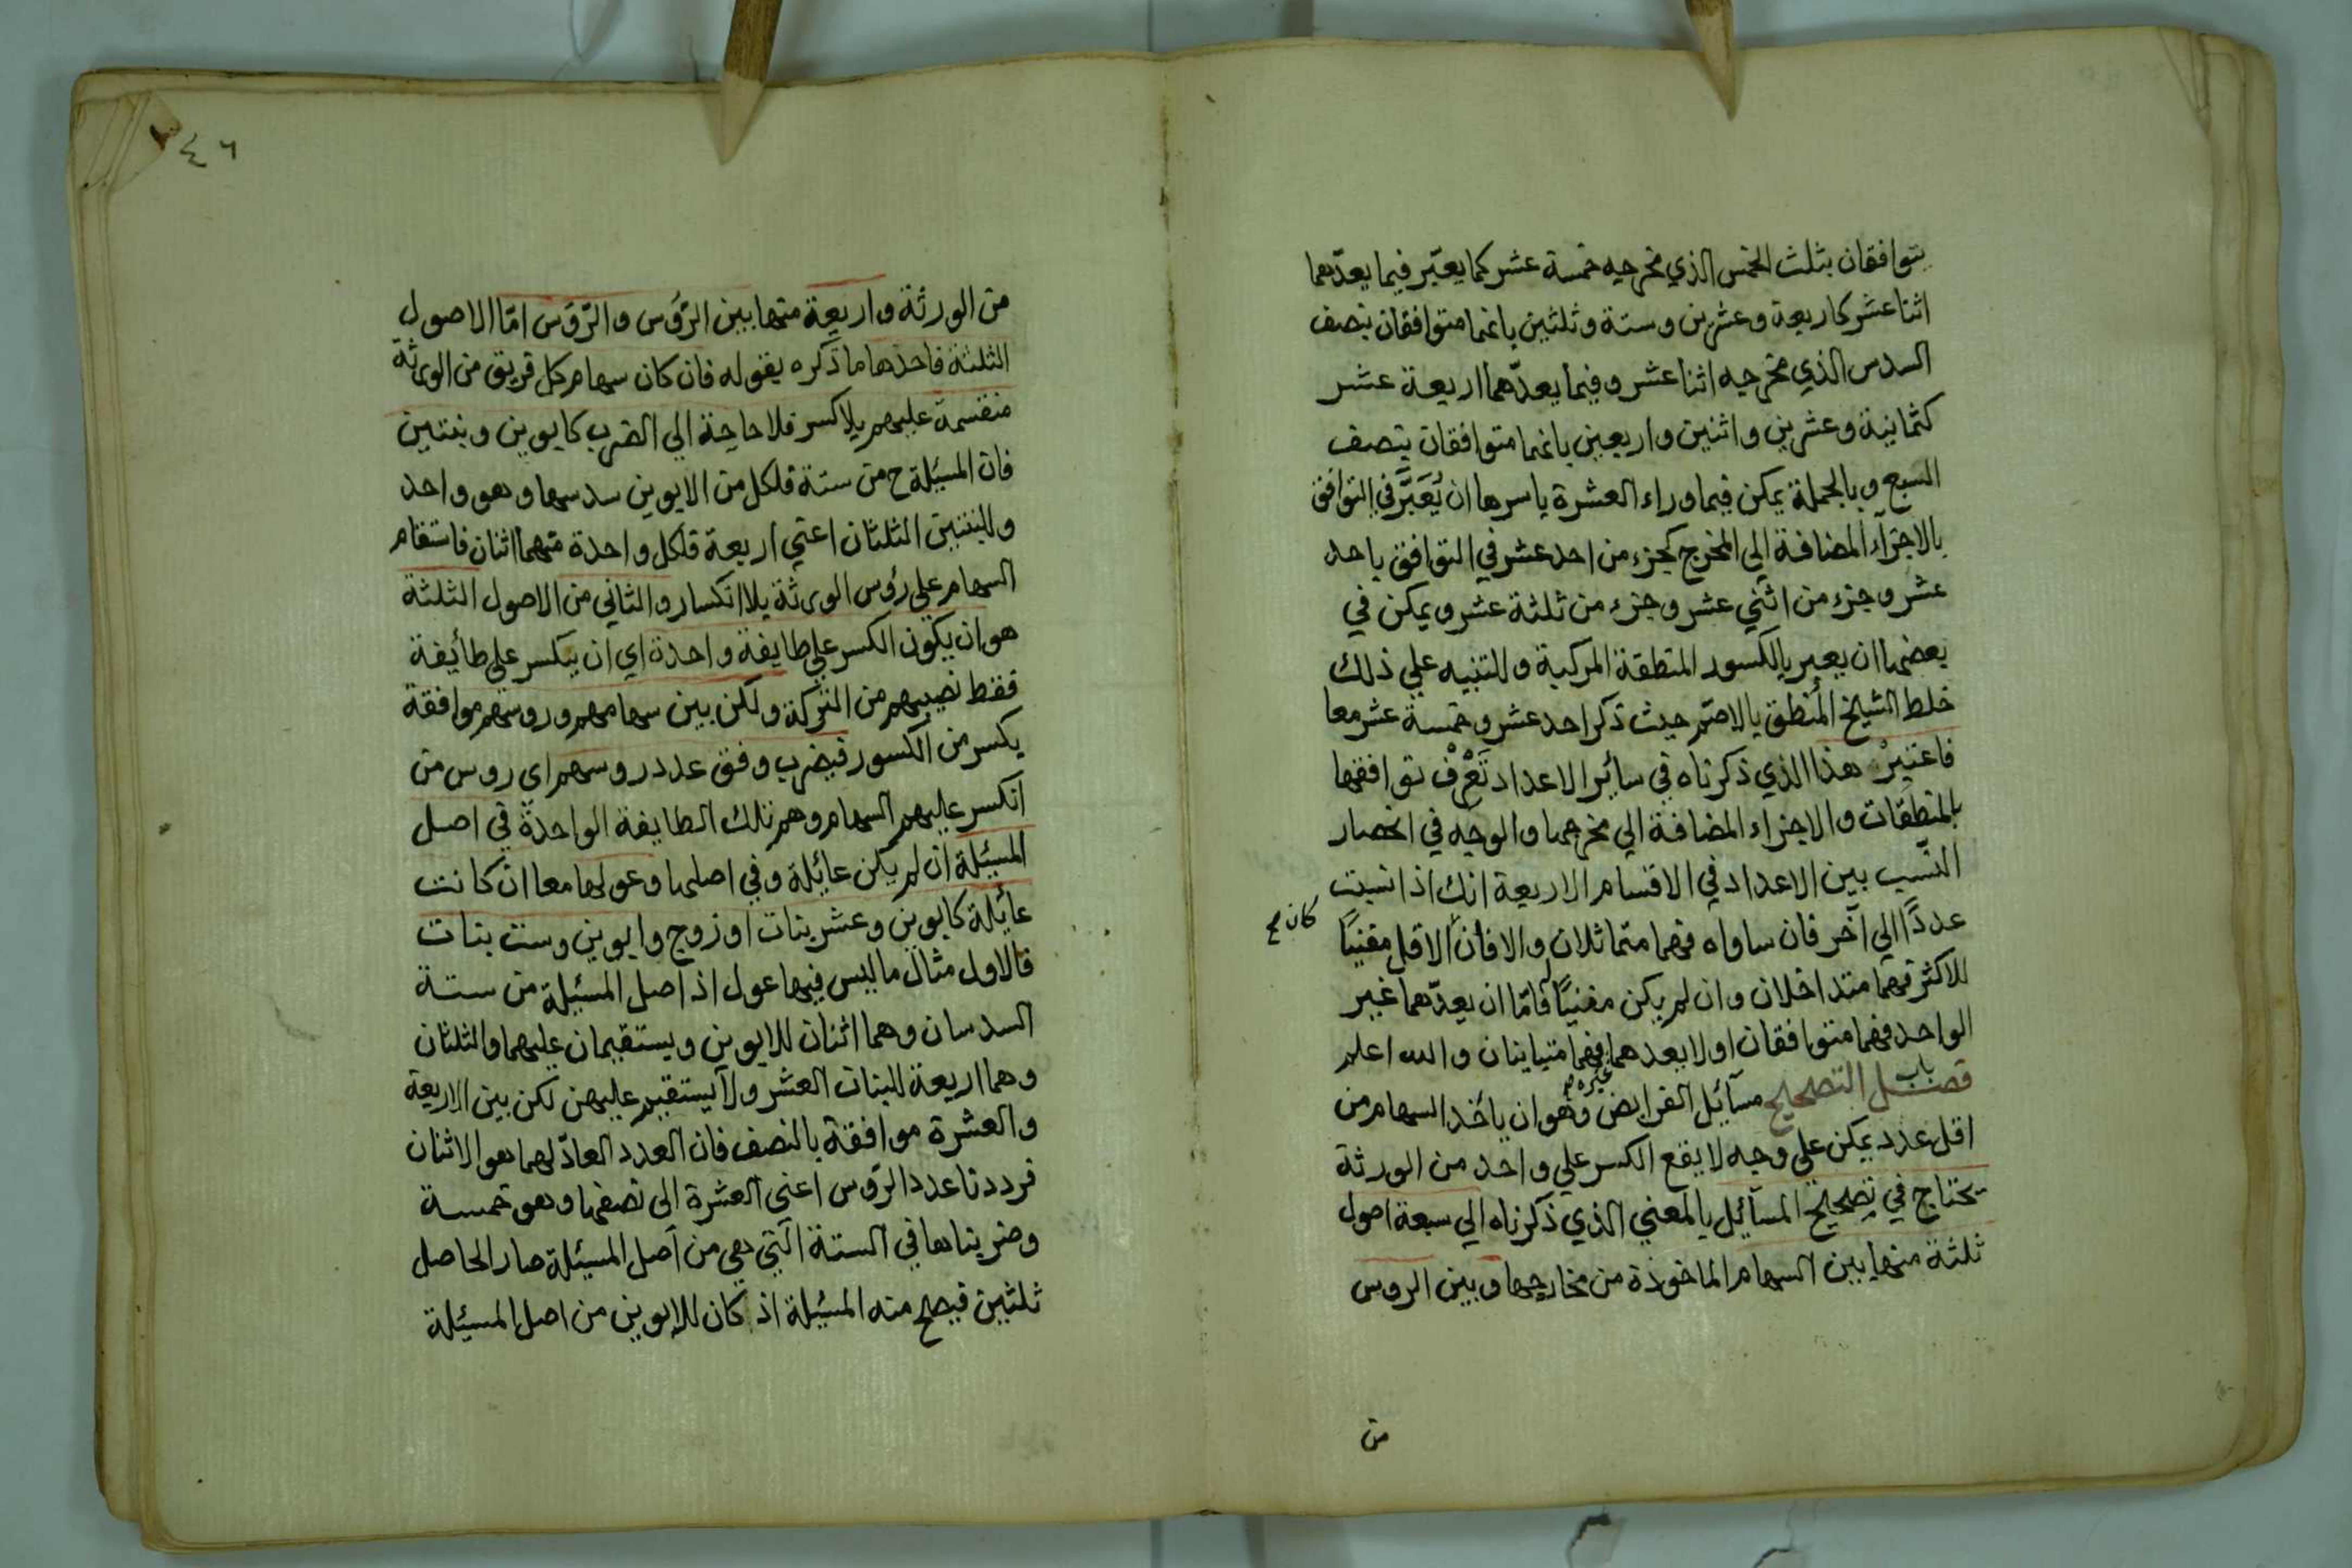 يتوافقان بثلث الخمس الذي مخرجه خمسة عشر كما يعبّر فيما يعدّهما
اثنا عشر كاربعة وعشرين وستة وثلثين بانهما متوافقان بنصف
السدس الذي مخرجه اثنا عشر وفيما يعدّهما اربعة عشر
كثمانية وعشرين واثنين واربعين بانهما متوافقان بنصف
السبع وبالجملة يمكن فيما وراء العشرة باسرها ان يُعَبَّر في التوافق
بالاجزاء المضافة الي المخرج كجزء من احد عشر في التوافق باحد
عشر وجزء من اثني عشر وجزء من ثلثة عشر ويمكن في
بعضها ان يعبر بالكسور المنطقة المركبة وللتنبيه علي ذلك
خلط الشيخ المُنطق بالاصمّ حيث ذكر احد عشر وخمسة عشر معا
فاعتبِرْ هذا الذي ذكرناه في سائر الاعداد تَعْرِفْ توافقها
بالمنطقات والاجزاء المضافة الي مخرجها والوجه في انحصار
النّسب بين الاعداد في الاقسام الاربعة انك اذا نسبت
عددًا الي آخر فان ساواه فهما متماثلان والا فان الاقل مفنيًا
كان صح
للاكثر فهما متداخلان وان لم يكن مفنيًا فامّا ان يعدّهما غير
الواحد فهما متوافقان اولا يعدهما غيره فهما متباينان والله اعلم
فصل باب التصحيح مسآئل الفرايض وهو ان ياخذ السهام من
اقل عدد يمكن علي وجه لا يقع الكسر علي واحد من الورثة
يحتاج في تصحيح المسآئل بالمعني الذي ذكرناه الي سبعة اصول
ثلثة منها بين السهام الماخوذة من مخارجها وبين الروس
من
٤٦
من الورثة واربعة منها بين الرّؤس والرّؤس امّا الاصول
الثلثة فاحدها ما ذكره بقوله فان كان سهام كل فريق من الورثة
منقسمة عليهم بلا كسر فلا حاجة الي الضرب كابوين وبنتين
فان المسئلة ح من ستة فلكل من الابوين سدسها وهو واحد
وللبنتين الثلثان اعني اربعة فلكل واحدة منهما اثنان فاستقام
السهام علي رؤس الورثة بلا انكسار والثاني من الاصول الثلثة
هو ان يكون الكسر علي طايفة واحدة اي ان ينكسر علي طآئفة
فقط نصيبهم من التركة ولكن بين سهامهم وروسهم موافقة
بكسر من الكسور فيضرب وفق عدد روسهم اى روس من
انكسر عليهم السهام وهم تلك الطايفة الواحدة في اصل
المسئلة ان لم يكن عائلة وفي اصلها وعولها معا ان كانت
عائلة كابوين وعشر بنات او زوج وابوين وست بنات
فالاول مثال ما ليس فيها عول اذ اصل المسئلة من ستة
السدسان وهما اثنان للابوين ويستقيمان عليهما والثلثان
وهما اربعة للبنات العشر ولا يستقيم عليهن لكن بين الاربعة
والعشرة موافقة بالنصف فان العدد العادّ لهما هو الاثنان
فرددنا عدد الرّوس اعني العشرة الى نصفها وهو خمسة
وضربناها في الستة الّتي هي من اصل المسئلة صار الحاصل
ثلثين فيصح منه المسئلة اذ كان للابوين من اصل المسئلة